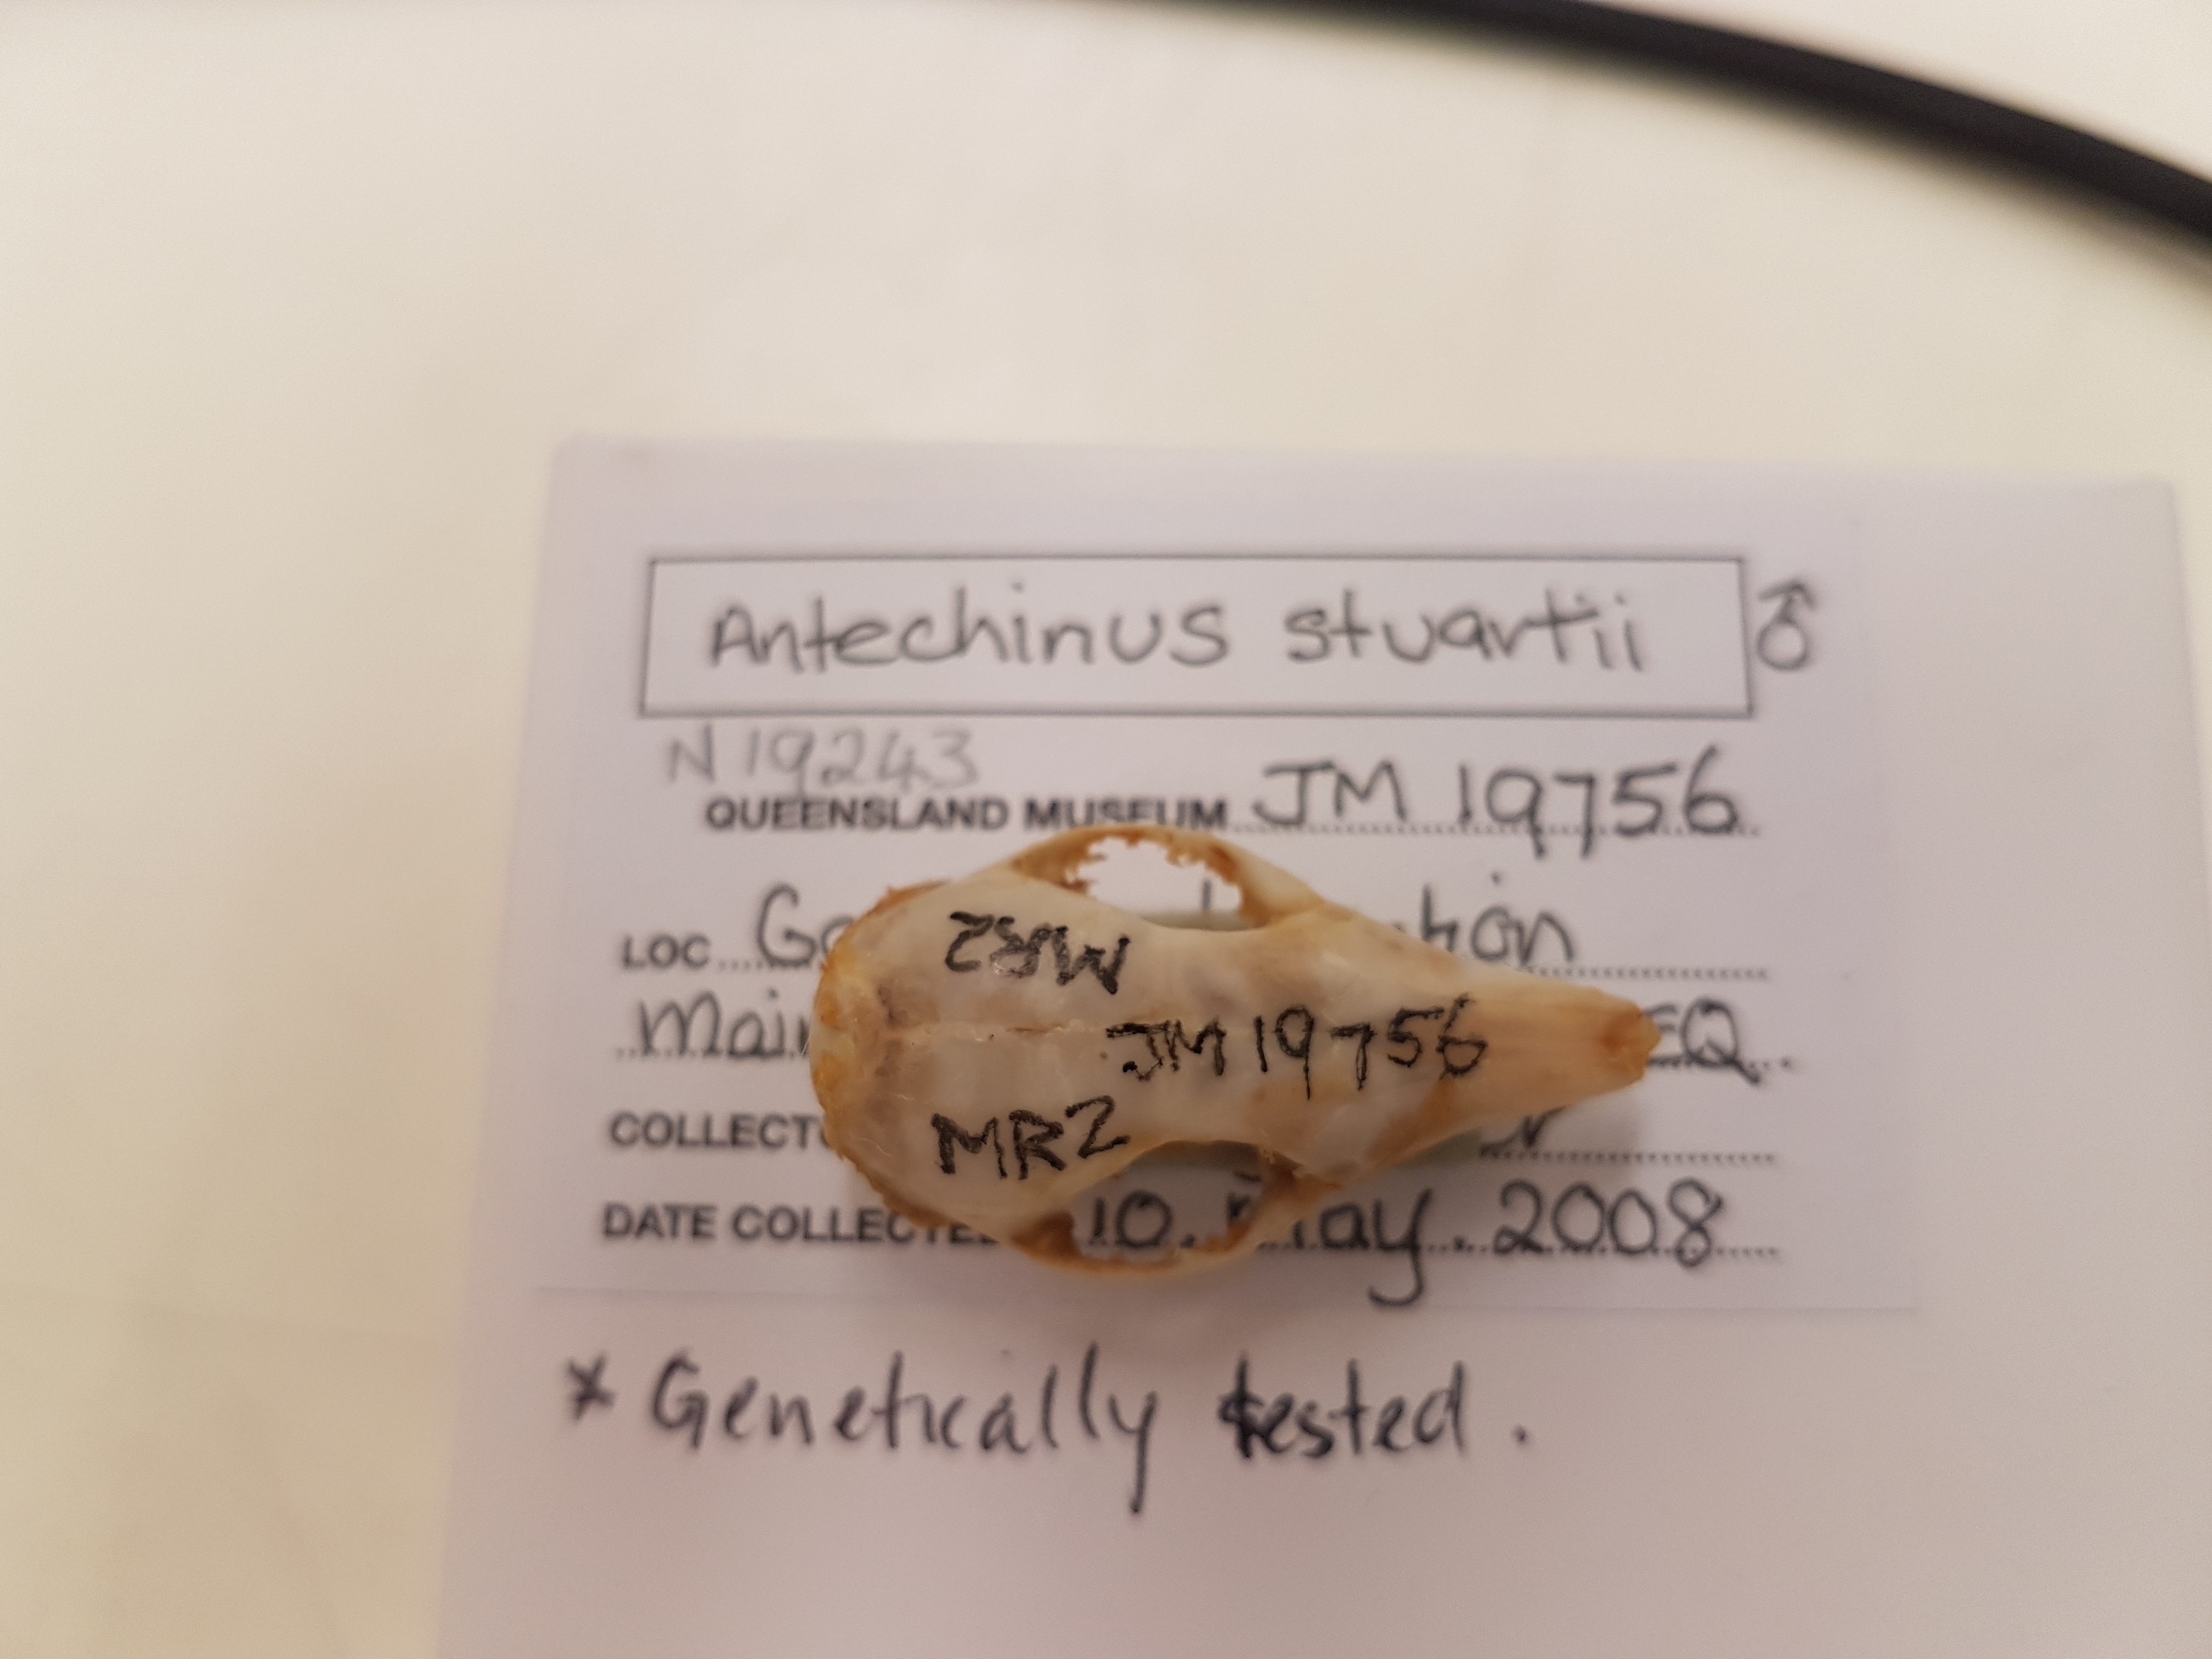 Antechinus stuartii ♂
N19243
QUEENSLAND MUSEUM JM 19756
LOC
COLLECT
DATE COLLECTE 10. May. 2008
* Genetically tested.
MRZ
JM19756